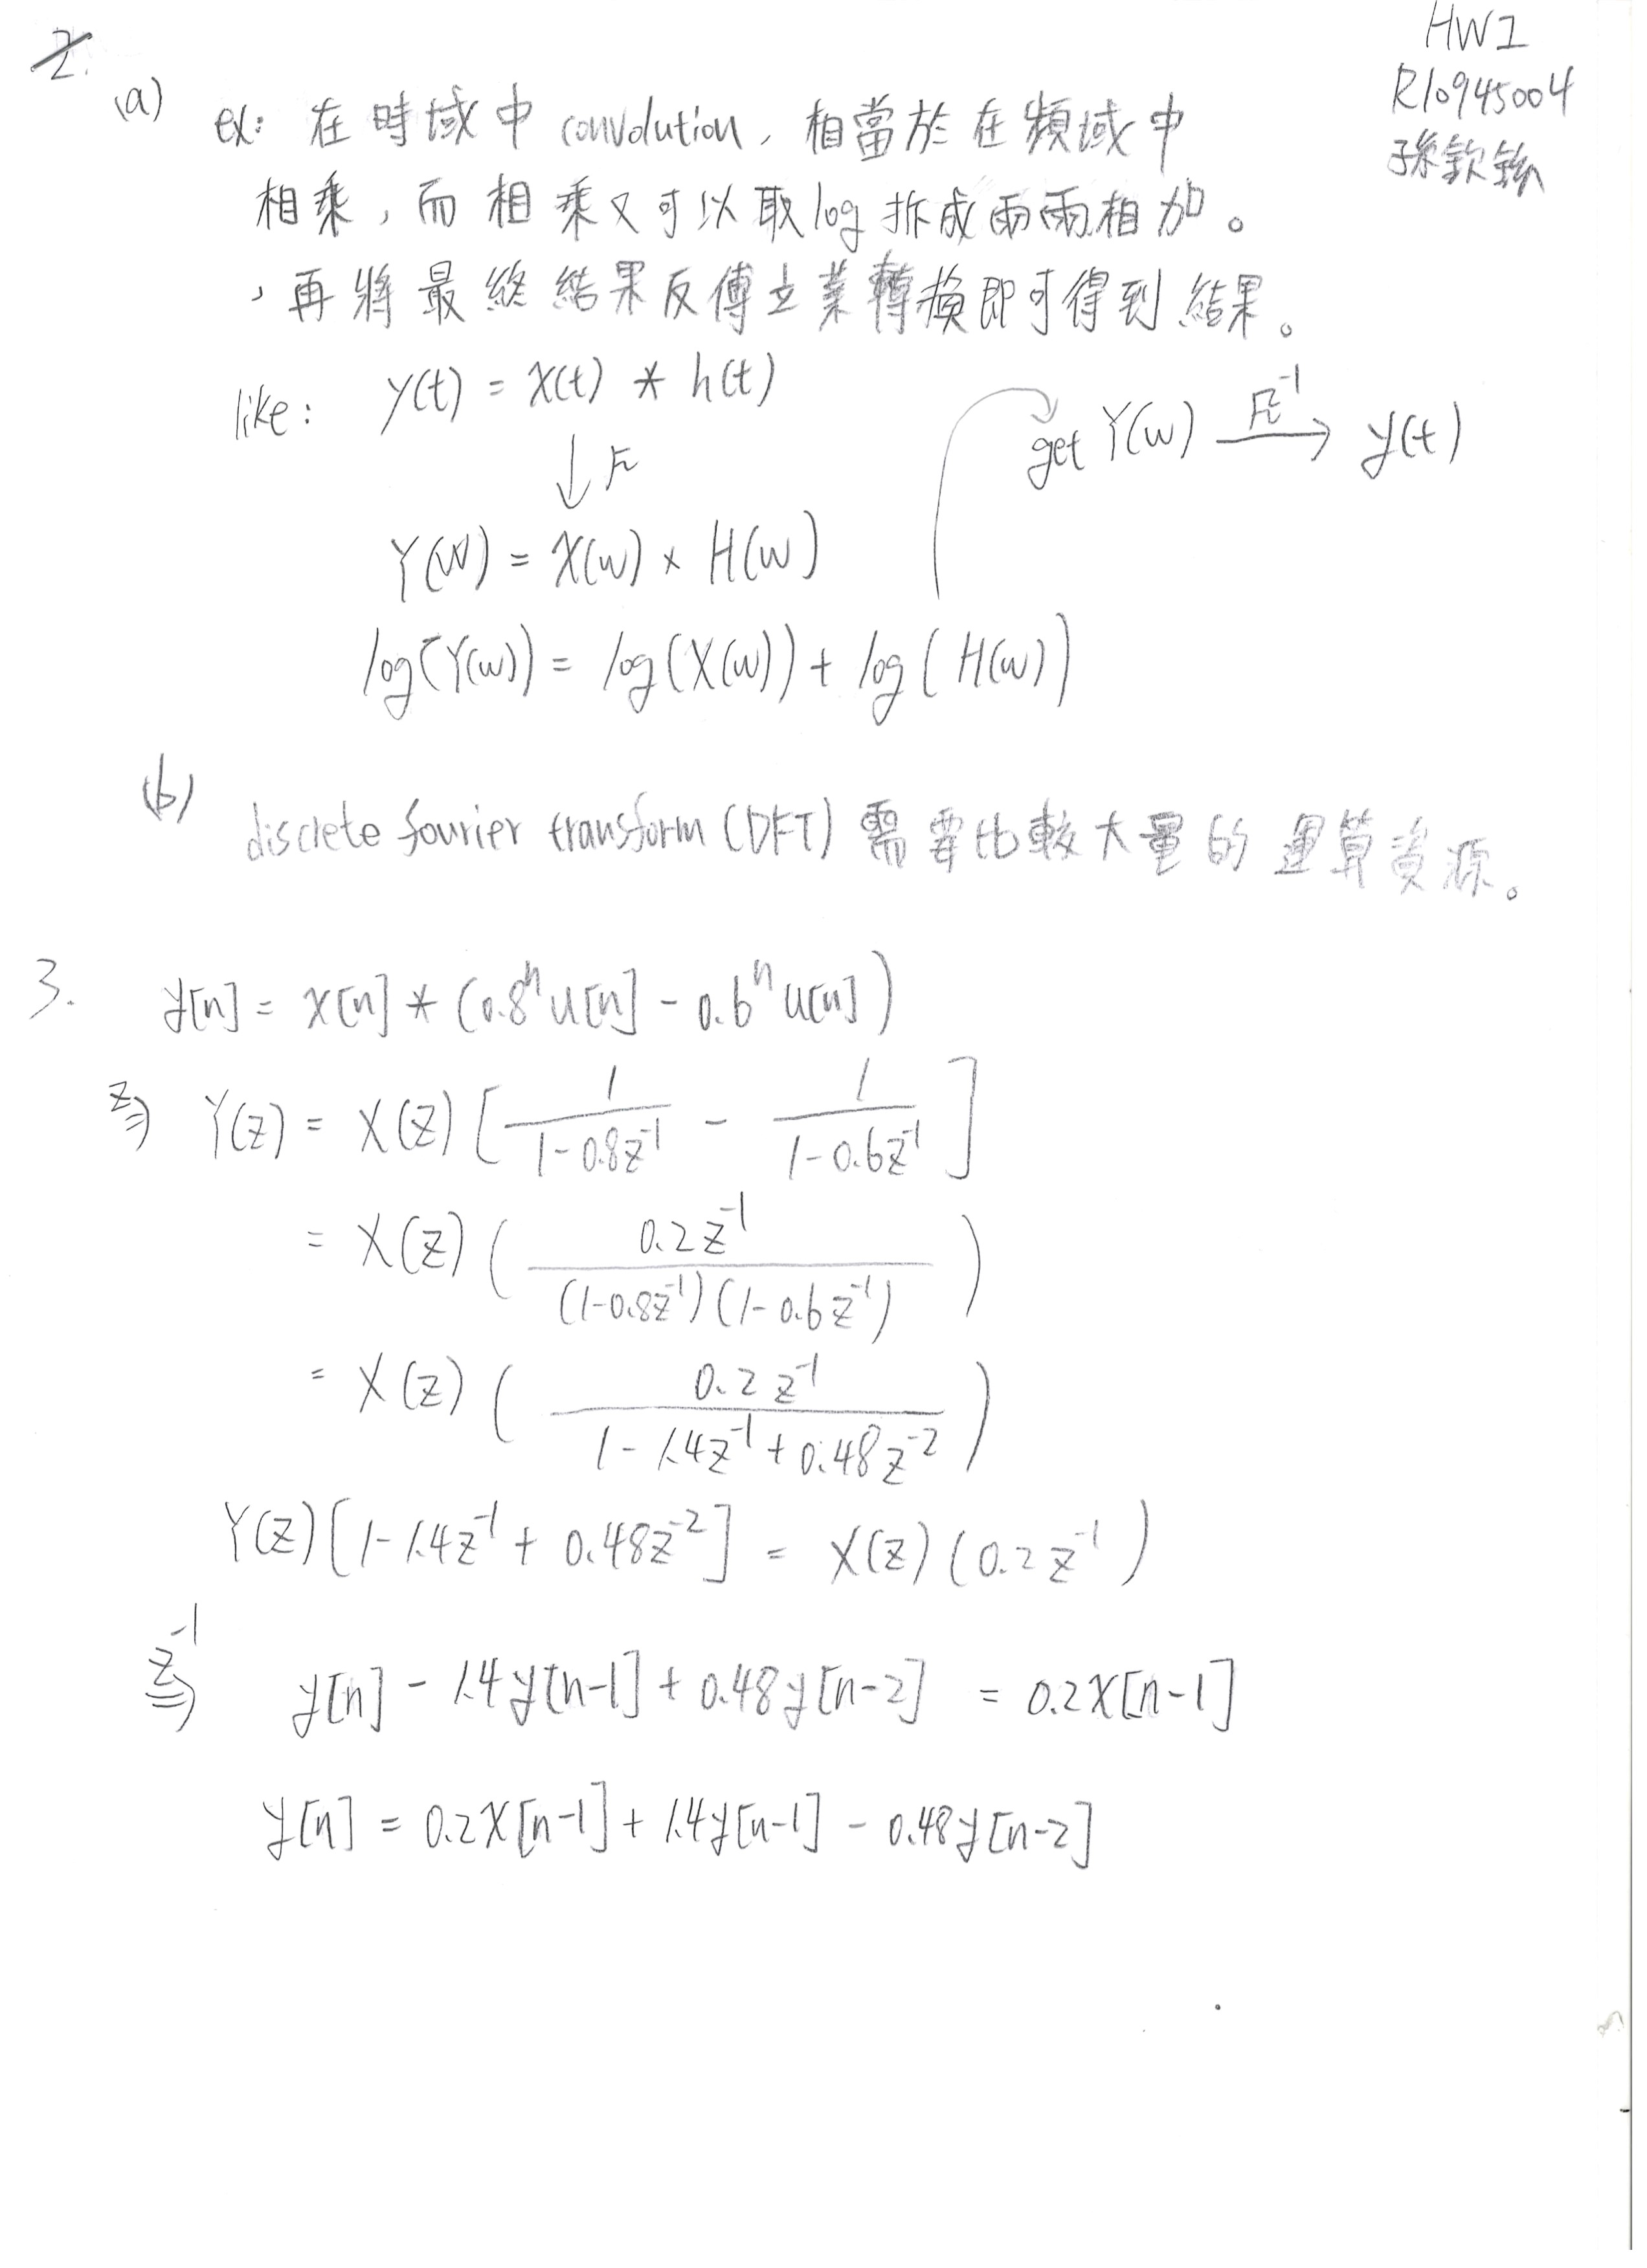 HW1
R10945004
2.
(a) ex: 在時域中 convolution, 相當於在頻域中
相乘, 而相乘又可以取log 拆成兩兩相加。
, 再將最終結果反傅立葉轉換即可得到結果。
like: y(t) = X(t) * h(t)
↓ F
get Y(w) F⁻¹→ y(t)
Y(w) = X(w) × H(w)
log(Y(w)) = log(X(w)) + log(H(w))
(b) discrete fourier transform (DFT) 需要比較大量的運算資源。
3. y[n] = x[n] * (0.8ⁿu[n] - 0.6ⁿu[n])
z⇒ Y(z) = X(z) [ 1/(1-0.8z⁻¹) - 1/(1-0.6z⁻¹) ]
= X(z) ( 0.2z⁻¹/((1-0.8z⁻¹)(1-0.6z⁻¹)) )
= X(z) ( 0.2z⁻¹/(1-1.4z⁻¹+0.48z⁻²) )
Y(z)[1-1.4z⁻¹ + 0.48z⁻²] = X(z)(0.2z⁻¹)
z⁻¹⇒ y[n] - 1.4y[n-1] + 0.48y[n-2] = 0.2X[n-1]
y[n] = 0.2X[n-1] + 1.4y[n-1] - 0.48y[n-2]